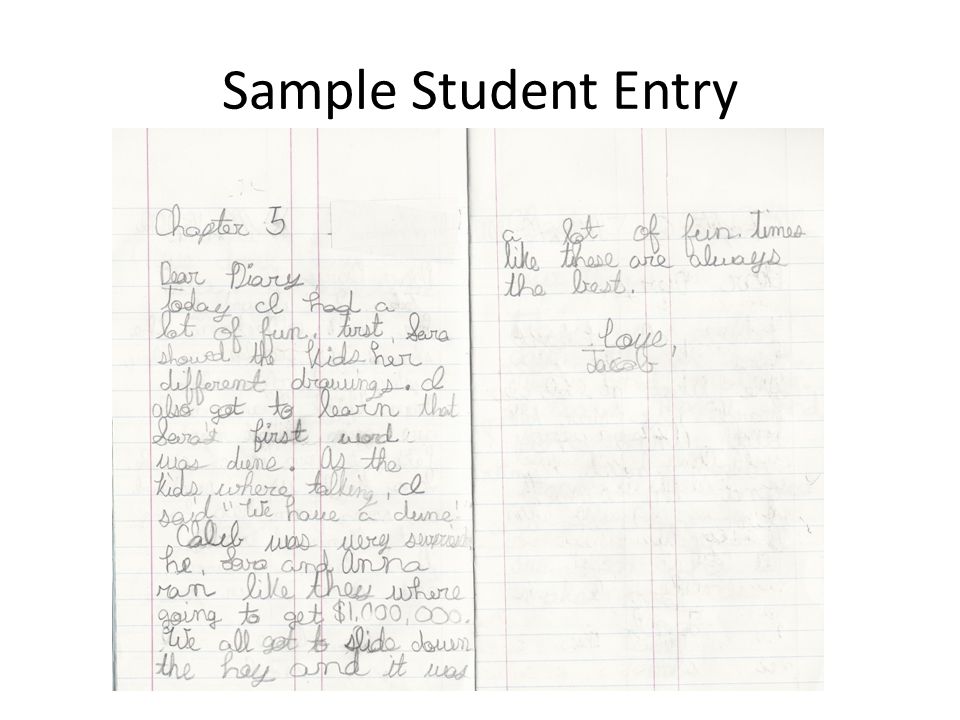 Sample Student Entry
Chapter 5
Dear Diary,
Today I had a
lot of fun. First, Sara
showed the kids her
different drawings. I
also got to learn that
Sara's first word
was dune. As the
kids where talking, I
said "We have a dune"
Caleb was very
he, Sara and Anna
ran like they where
going to get $1,000,000.
We all got to slide down
the hay and it was
a lot of fun. Times
like these are always
the best.
Love,
Jacob